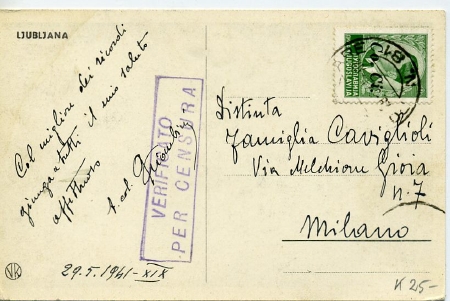 LJUBLJANA
Col migliore dei ricordi
giunga a tutti il mio saluto
affettuoso
t. col.
29.5.1941-XIX
VERIFICATO
PER CENSURA
ЈУГОСЛАВИЈА
JUGOSLAVIJA
Distinta
famiglia Caviglioli
Via Melchiorre Gioia
n. 7
Milano
K 25-